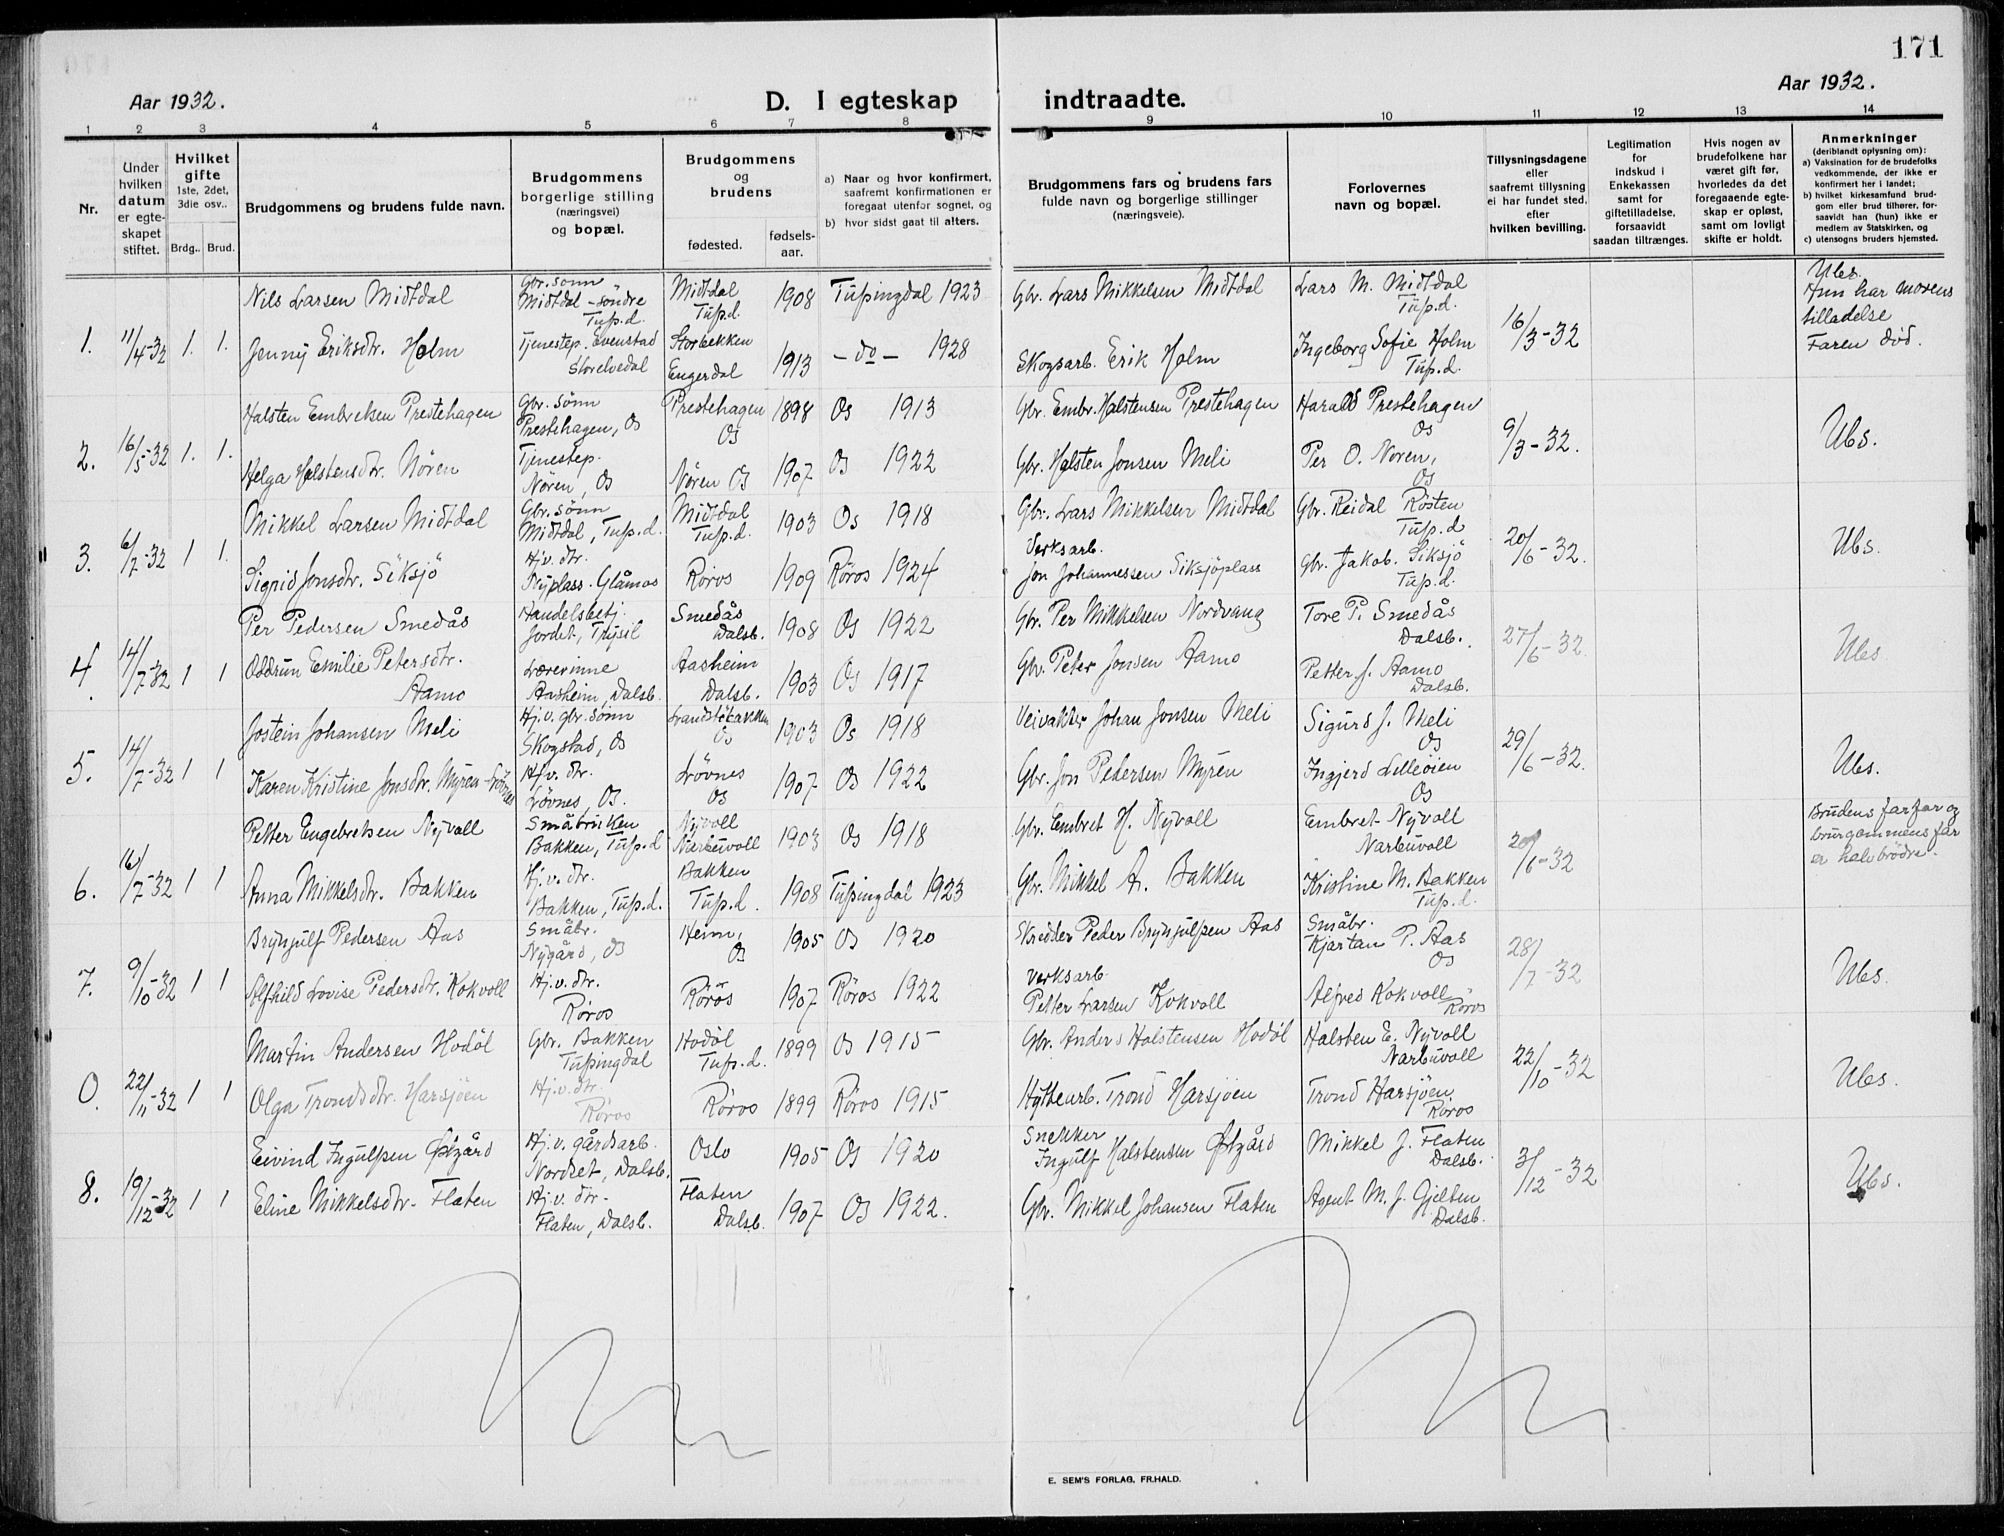 171
Aar 1932.
D. I egteskap
indtraadte.
Aar 1932.
1 2 3 4 5 6 7 8 9 10 11 12 13 14
Nr.
Under
hvilken
datum
er egte-
skapet
stiftet.
Hvilket
gifte
1ste, 2det,
3die osv..
Brdg.. Brud.
Brudgommens og brudens fulde navn.
Brudgommens
borgerlige stilling
(næringsvei)
og bopæl.
Brudgommens
og
brudens
fødested.
fødsels-
aar.
a) Naar og hvor konfirmert,
saafremt konfirmationen er
foregaat utenfor sognet, og
b) hvor sidst gaat til alters.
Brudgommens fars og brudens fars
fulde navn og borgerlige stillinger
(næringsveie).
Forlovernes
navn og bopæl.
Tillysningsdagene
eller
saafremt tillysning
ei har fundet sted,
efter
hvilken bevilling.
Legitimation
for
indskud i
Enkekassen
samt for
giftetilladelse,
forsaavidt
saadan tiltrænges.
Hvis nogen av
brudefolkene har
været gift før,
hvorledes da det
foregaaende egte-
skap er opløst,
samt om lovligt
skifte er holdt.
Anmerkninger
(deriblandt oplysning om):
a) Vaksination for de brudefolks
vedkommende, der ikke er
konfirmert her i landet;
b) hvilket kirkesamfund brud-
gom eller brud tilhører, for-
saavidt han (hun) ikke er
medlem av Statskirken, og
c) utensogns bruders hjemsted.
1. 11/4-32 1. 1.
Nils Larsen Midtdal
Gbr. sønn
Midtdal-søndre
Tufs.d.
Midtdal
Tufs.d.
1908 Tufsingdal 1923
Gbr. Lars Mikkelsen Midtdal
Lars M. Midtdal
Tufs.d.
16/3-32
Ubs.
Hun har morens
tilladelse
Faren død.
Jenny Eriksdtr. Holm
Tjenestep. Evenstad
Storelvedal
Storbekken
Engerdal
1913 -do- 1928
Skogsarb. Erik Holm
Ingeborg Sofie Holm
Tufs.d.
2. 16/5-32 1. 1.
Halsten Embretsen Prestehagen
Gbr. sønn
Prestehagen, Os
Prestehagen
Os
1898 Os 1913
Gbr. Embr. Halstensen Prestehagen
Harald Prestehagen
Os
9/3-32.
Ubs.
Helga Halstensdtr. Nören
Tjenestep.
Nören, Os
Nören Os
1907 Os 1922
Gbr. Halsten Jonsen Meli
Per O. Nören,
Os
3. 6/7-32 1 1.
Mikkel Larsen Midtdal
Gbr. sønn
Midtdal, Tufs.d.
Midtdal
Tufs.d.
1903 Os 1918
Gbr. Lars Mikkelsen Midtdal
Gbr. Reidal Røsten
Tufs.d
20/6-32.
Ubs.
Sigrid Jonsdtr. Siksjö
Hj.v. dtr.
Nyplass. Glåmos
Røros
1909 Röros 1924
Verksarb.
Jon Johannessen Siksjöplass
Gbr. Jakob. Siksjö
Tufs.d.
4. 14/7-32 1 1
Per Pedersen Smedås
Handelsbetj.
Jordet, Trysil
Smedås
Dalsb.
1908 Os 1922
Gbr. Per Mikkelsen Nordvang
Tore P. Smedås
Dalsb.
27/6-32.
Ubs
Oddrun Emilie Petersdtr.
Aamo
Lærerinne
Aasheim, Dalsb.
Aasheim
Dalsb.
1903 Os 1917
Gbr. Peter Jonsen Aamo
Petter J. Aamo
Dalsb.
5. 14/7-32 1 1
Jostein Johansen Meli
Hj.v. gbr. sönn
Skogstad, Os
Os
1903 Os 1918
Veivakter Johan Jonsen Meli
Sigurd J. Meli
Os
29/6-32.
Ubs.
Karen Kristine Jonsdtr. Myren-Lövnes
Hj.v. dtr.
Lövnes, Os.
Lövnes
Os
1907 Os 1922
Gbr. Jon Pedersen Myren
Ingjerd Lilleöien
Os
6. 16/7-32 1 1
Petter Engebretsen Nyvoll
Småbruker
Bakken, Tufs.d
Nyvoll
Narbuvoll
1903 Os 1918
Gbr. Embret H. Nyvoll
Embret Nyvoll
Narbuvoll
20/6-32
Brudens farfar og
brurgommens far
er halvbrödre.
Anna Mikkelsdtr. Bakken
Hj.v. dtr.
Bakken, Tufs.d.
Bakken
Tufs.d.
1908 Tufsingdal 1923
Gbr. Mikkel A. Bakken
Kristine M. Bakken
Tufs.d.
7. 9/10-32 1 1
Brynjulf Pedersen Aas
Småbr.
Nygård, Os
Heim,
Os
1905 Os 1920
Skredder Peder Brynjulfsen Aas
Småbr.
Kjartan P. Aas
Os
28/7-32
Ubs.
Alfhild Lovise Pedersdtr. Kokvoll
Hj.v. dtr.
Røros
Røros
1907 Röros 1922
Verksarb.
Petter Larsen Kokvoll
Alfred Kokvoll
Röros
0. 22/11-32 1 1
Martin Andersen Hodøl
Gbr. Bakken
Tufsingdal
Hodøl
Tufs.d.
1899 Os 1915
Gbr. Anders Halstensen Hodøl
Halsten E. Nyvoll
Narbuvoll
22/10-32
Ubs.
Olga Trondsdtr. Harsjöen
Hj.v. dtr.
Røros
Røros 1899 Röros 1915
Hyttearb. Trond Harsjøen
Trond Harsjøen
Röros
8. 19/12-32 1 1
Eivind Ingulfsen Østgård
Hj.v. gårdsarb.
Nordset, Dalsb.
Oslo
1905 Os 1920
Snekker
Ingulf Halstensen Østgård
Mikkel J. Flaten
Dalsb.
3/12-32
Ubs.
Eline Mikkelsdtr. Flaten
Hj.v. dtr.
Flaten, Dalsb.
Flaten
Dalsb.
1907 Os 1922.
Gbr. Mikkel Johansen Flaten
Agent M. J. Gjelten
Dalsb.
E. SEM'S FORLAG, FR.HALD.